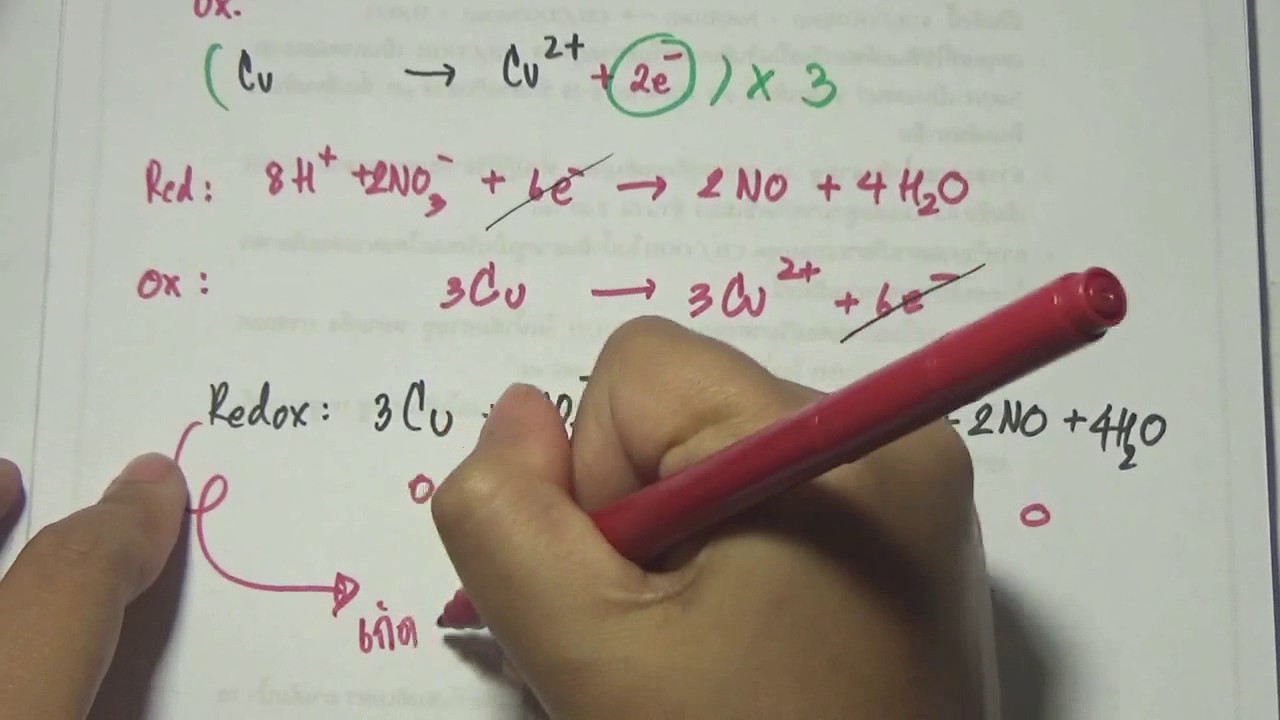 Ox.
( Cu → Cu²⁺ + 2e⁻ ) x 3
Red: 8H⁺ + 2NO₃⁻ + 6e⁻ → 2NO + 4H₂O
Ox : 3Cu → 3Cu²⁺ + 6e⁻
Redox: 3Cu + 2NO + 4H₂O
0 0
เกิด